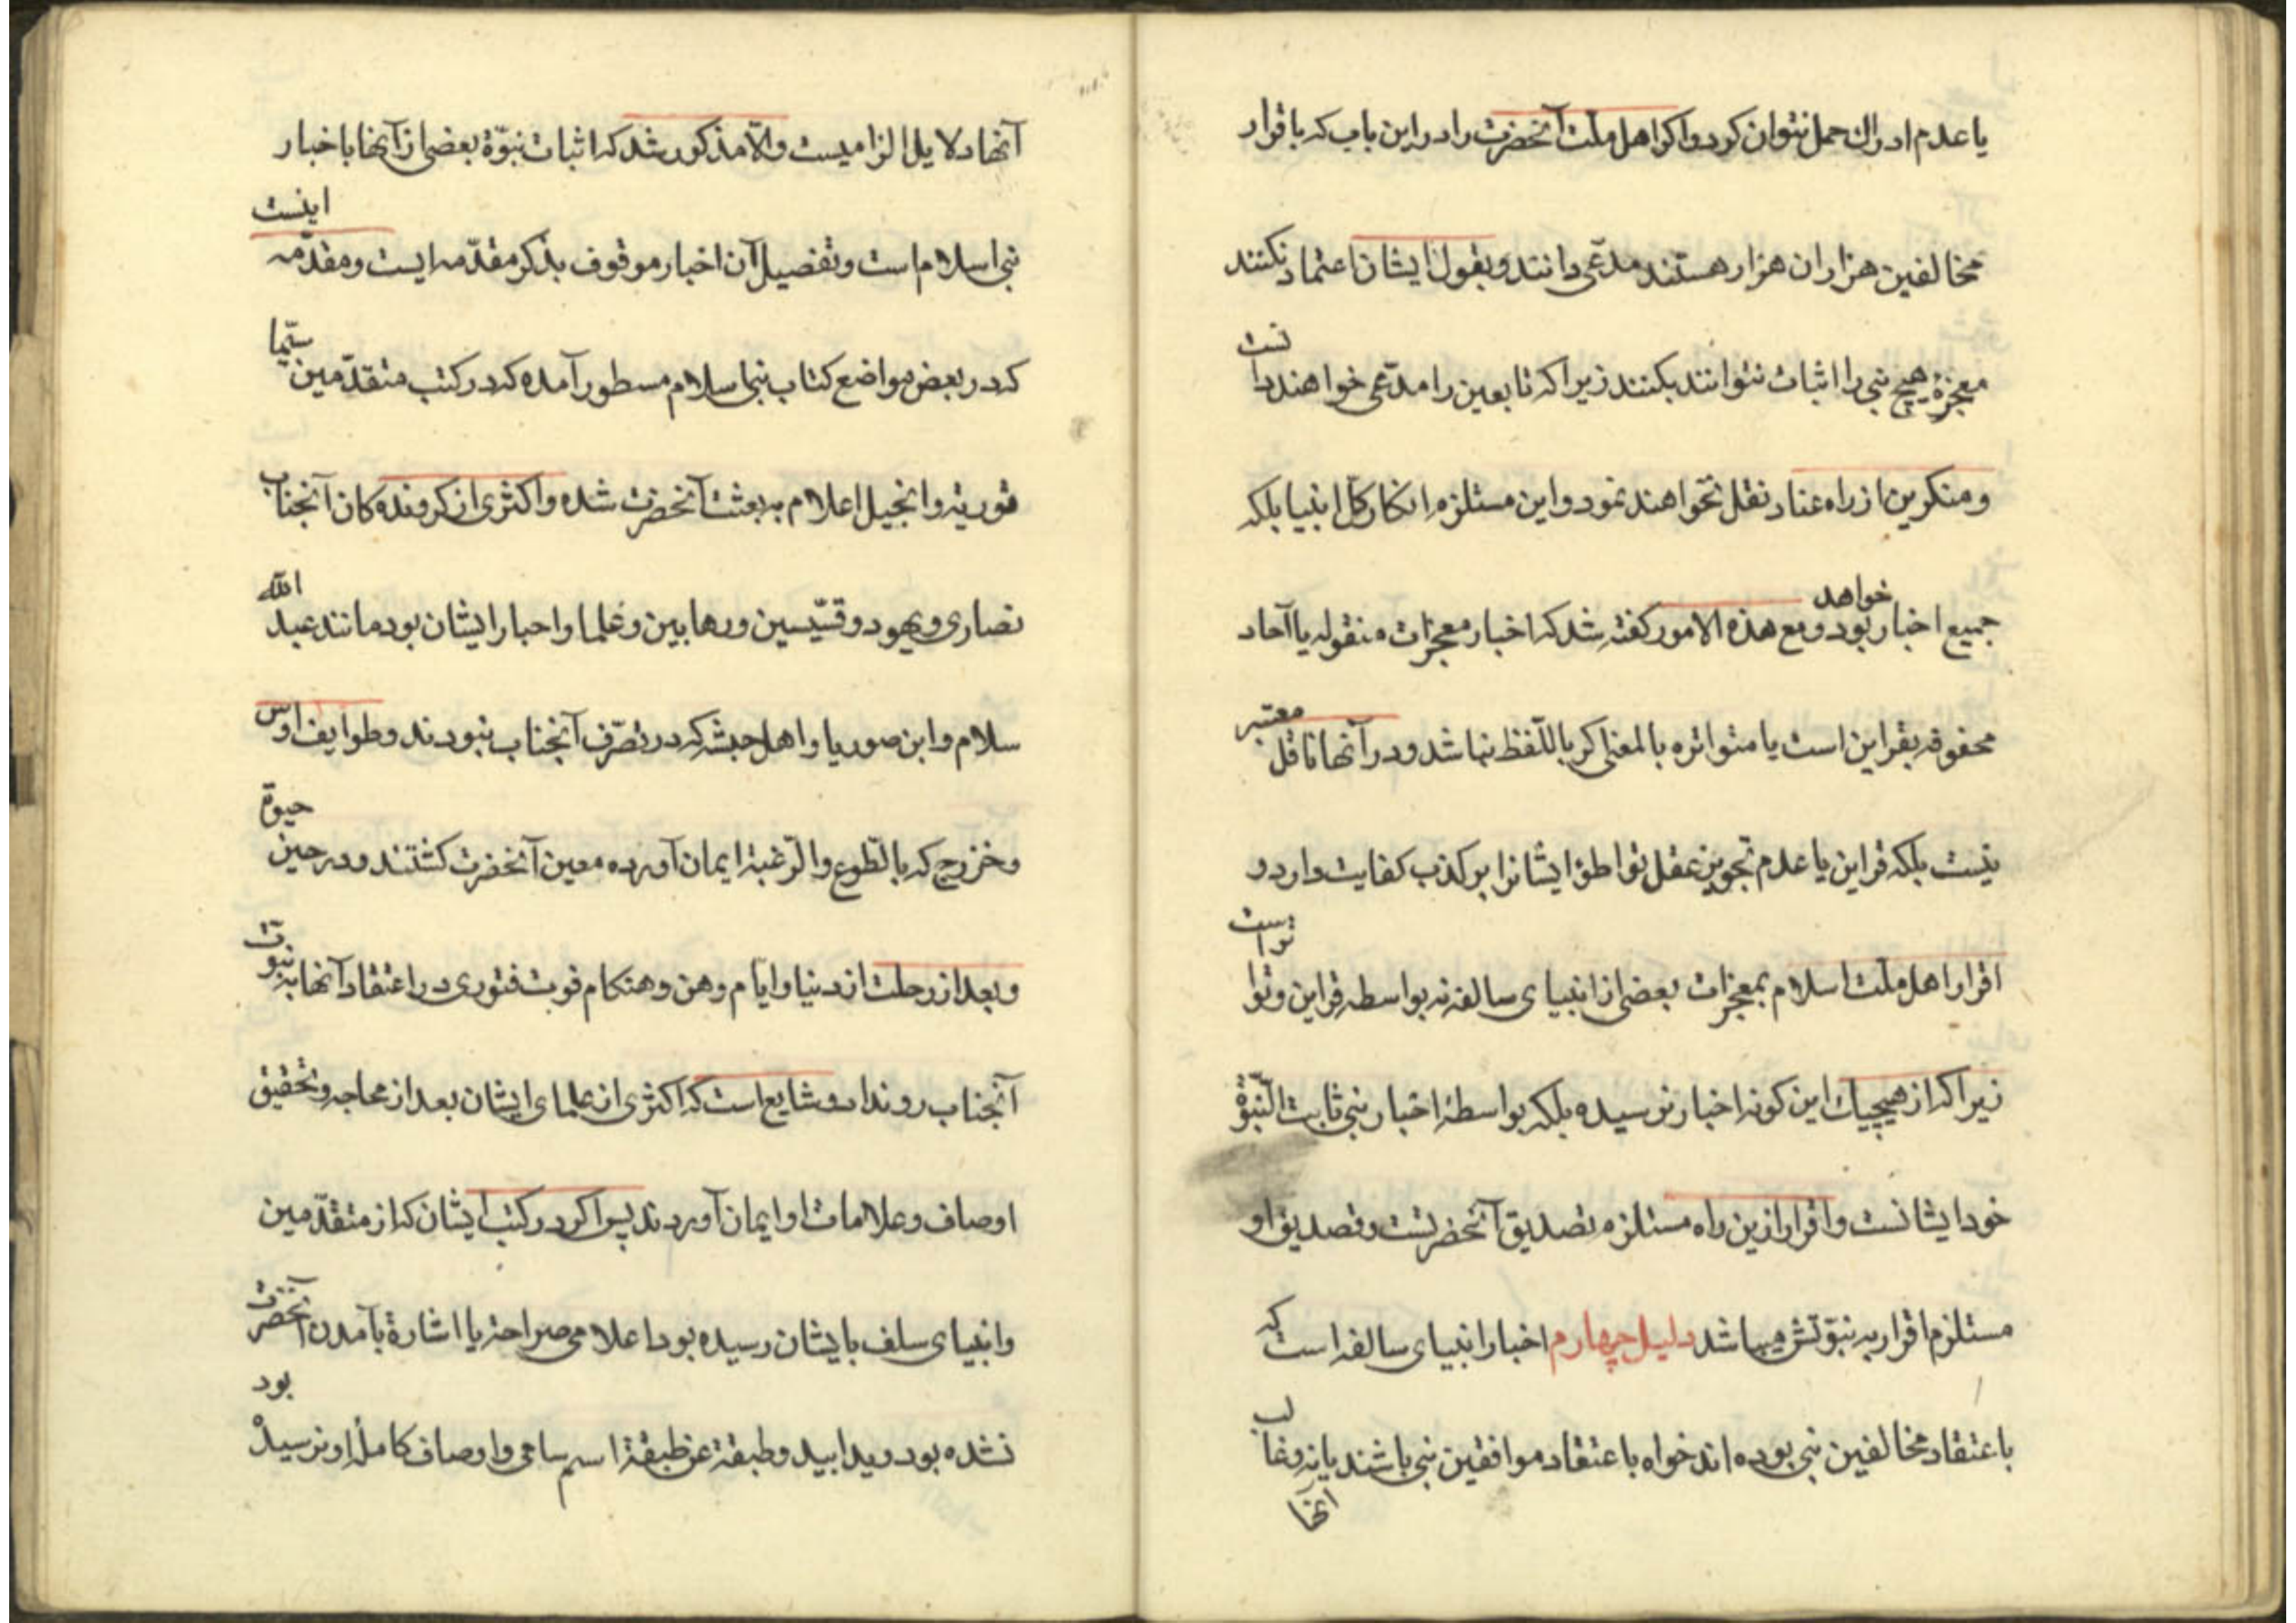 یا عدم ادراك حمل نتوان کرد و اکر اهل ملّت آنحضرت را در این باب که باقرار
مخالفین هزاران هزار هستند مدّعی دانند و بقول ایشان اعتماد نکنند
معجزهٔ هیچ نبی را اثبات نتوانند بکنند زیرا که تابعین را مدّعی خواهند دانست
و منکرین از راه عناد نقل نخواهند نمود و این مستلزم انکار کلّ انبیا بلکه
جمیع اخبار خواهد بود و مع هذه الامور کفته شد که اخبار معجزات منقوله یا آحاد
محفوفه بقراین است یا متواتره بالمعنی اکر باللّفظ نباشد و در آنها ناقل معتبر
نیست بلکه قراین یا عدم تجویز عقل تواطؤ ایشانرا بر کذب کفایت دارد و
اقرار اهل ملّت اسلام بمعجزات بعضی از انبیای سالفه نه بواسطه قراین و تواتر است
زیرا که از هیچیك این کونه اخبار نرسیده بلکه بواسطهٔ اخبار نبی ثابت النّبوّة
خود ایشانست و اقرار ازین راه مستلزم تصدیق آنحضرتست و تصدیق او
مستلزم اقرار به نبوّتش میباشد دلیل چهارم اخبار انبیای سالفه است که
باعتقاد مخالفین نبی بوده اند خواه باعتقاد موافقین نبی باشند یا نه و غالب
آنها
آنها دلایل الزامیست و الّا مذکور شد که اثبات نبوّة بعضی از آنها باخبار
نبی اسلام است و تفصیل آن اخبار موقوف بذکر مقدّمه ایست و مقدّمه اینست
که در بعض مواضع کتاب نبی اسلام مسطور آمده که در کتب متقدّمین سیّما
توریة و انجیل اعلام به بعثت آنحضرت شده و اکثری از کروندهکان آنجناب
نصاری و یهود و قسّیسین و رهابین و علما و احبار ایشان بود مانند عبد الله
سلام و ابن صوریا و اهل حبشه که در تصرّف آنجناب نبودند و طوایف اوس
و خزرج که بالطّوع و الرّغبة ایمان آورده معین آنحضرت کشتند و در حین حیوة
و بعد از رحلت از دنیا و ایّام وهن و هنکام فوت فتوری در اعتقاد آنها به نبوّت
آنجناب روندا و شایع است که اکثری از علمای ایشان بعد از محاجه و تحقیق
اوصاف و علامات او ایمان آوردند پس اکر در کتب ایشان که از متقدّمین
و انبیای سلف بایشان رسیده بود اعلامی صراحة یا اشارة بآمدن آنحضرت
نشده بود و یدا بید و طبقة عن طبقة اسم سامی و اوصاف کاملهٔ او نرسیده بود